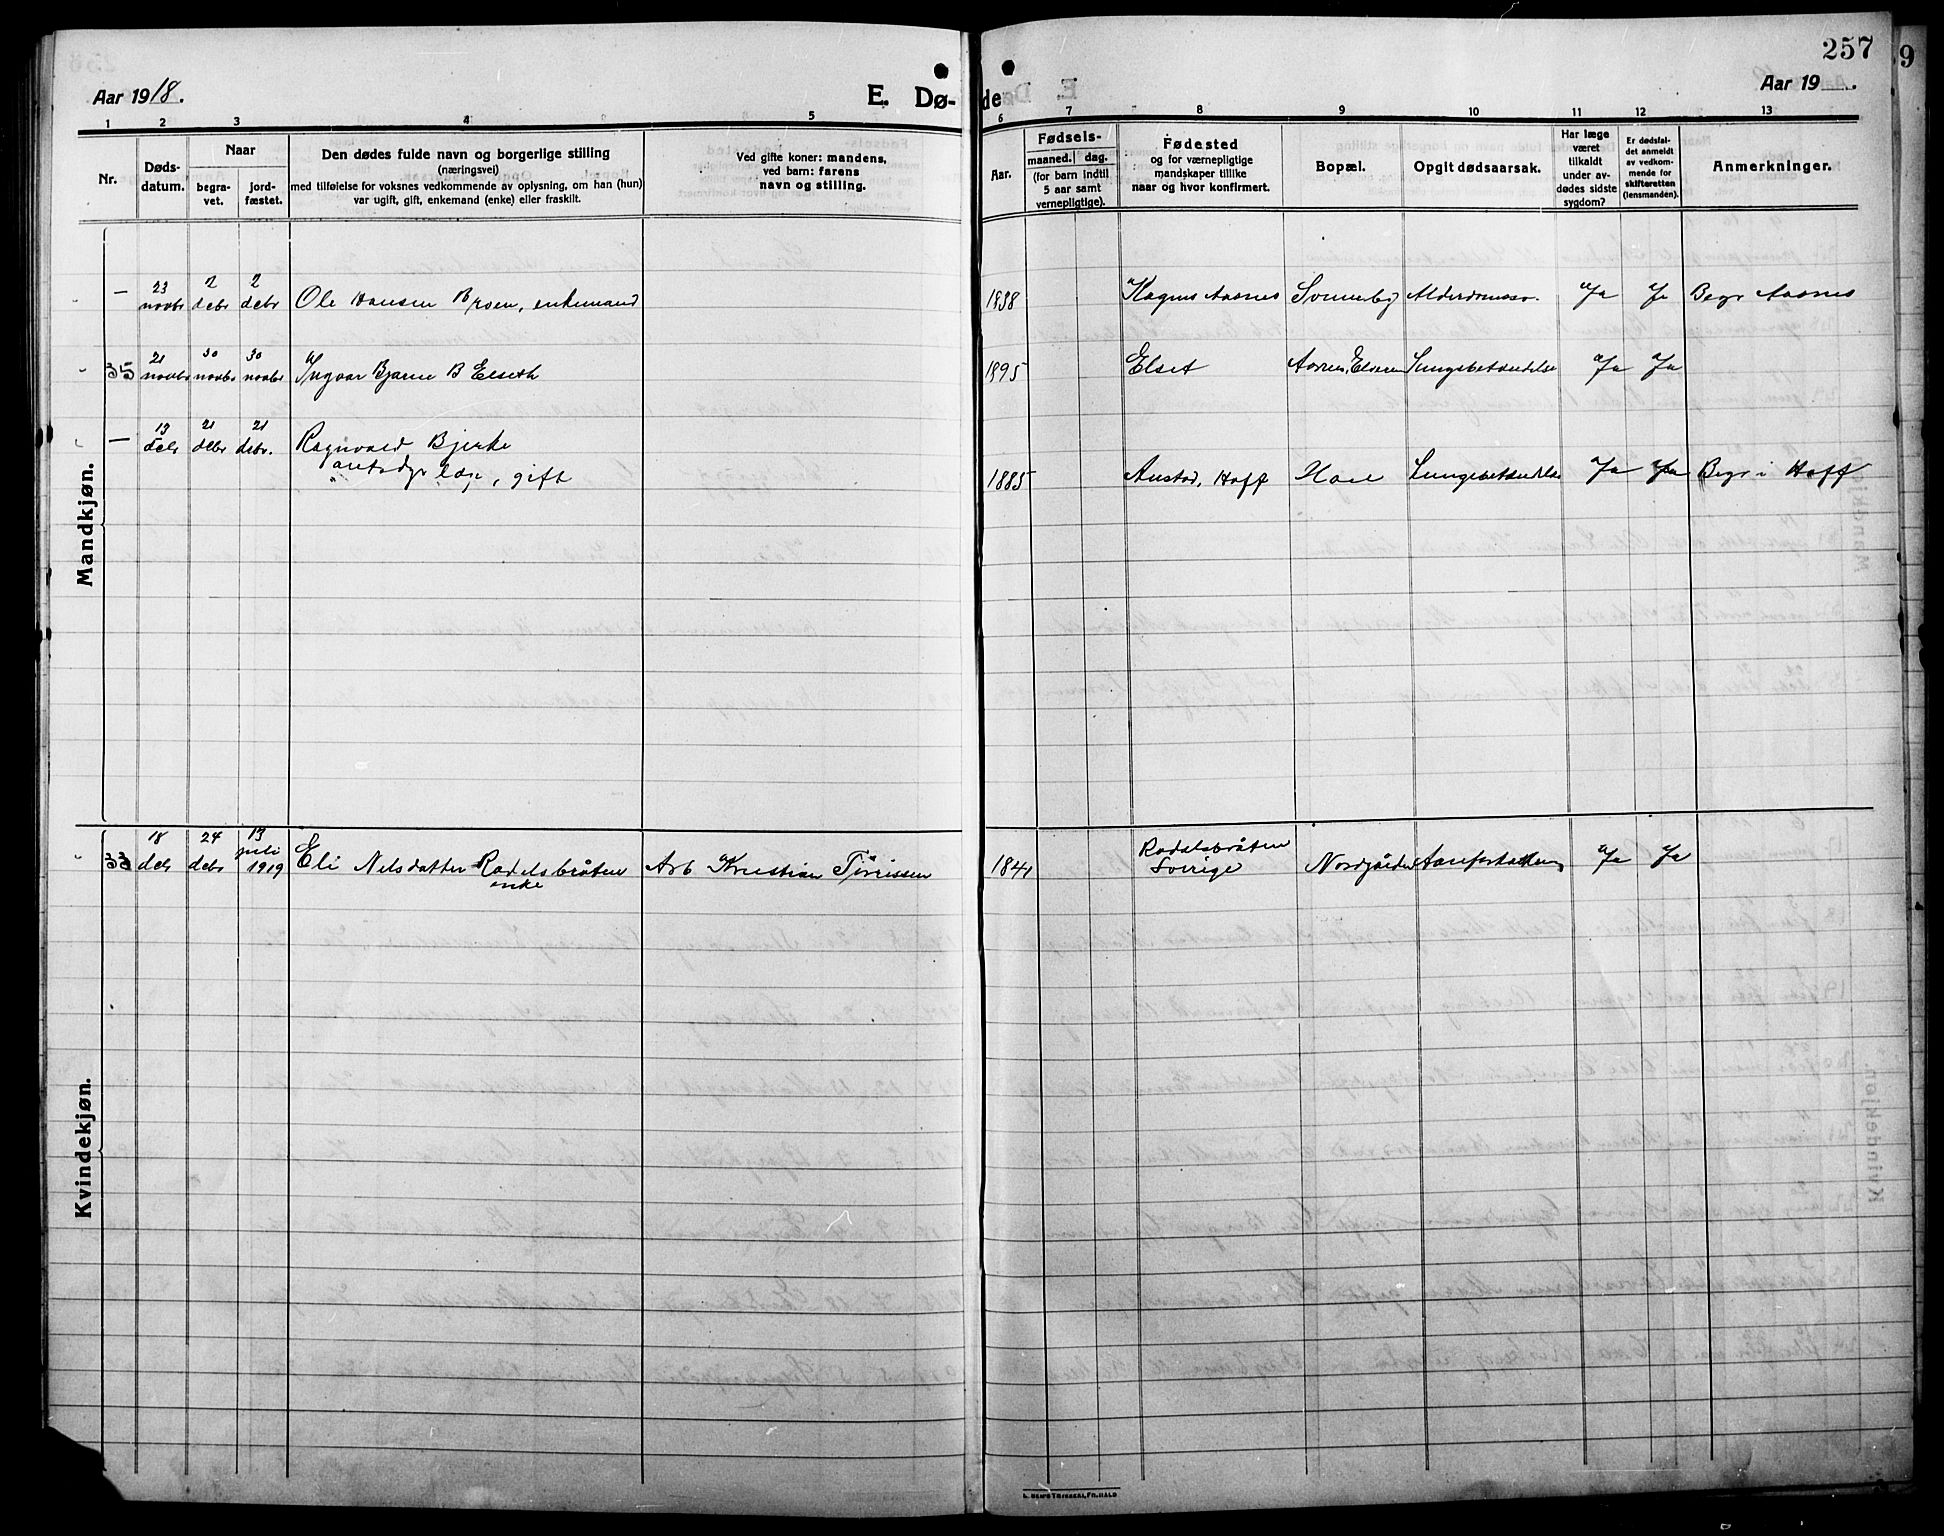 257
9
Aar 1918.
E. Dø-
de
Aar 19 .
1 2 3 4 5 6 7 8 9 10 11 12 13
Nr.
Døds-
datum.
Naar
begra-
vet.
jord-
fæstet.
Den dødes fulde navn og borgerlige stilling
(næringsvei)
med tilføielse for voksnes vedkommende av oplysning, om han (hun)
var ugift, gift, enkemand (enke) eller fraskilt.
Ved gifte koner: mandens,
ved barn: farens
navn og stilling.
Aar.
Fødsels-
maaned. dag.
(for barn indtil
5 aar samt
vernepligtige).
Fødested
og for værnepligtige
mandskaper tillike
naar og hvor konfirmert.
Bopæl.
Opgit dødsaarsak.
Har læge
været
tilkaldt
under av-
dødes sidste
sygdom?
Er dødsfal-
det anmeldt
av vedkom-
mende for
skifteretten
(lensmanden).
Anmerkninger.
Mandkjøn.
— 23 novbr 2 debr 2 debr Ole Hansen enkemand 1838 Aasnes Ja Ja Begr Aasnes
35 21 novbr 30 novbr 30 novbr Yngvar Bjarne B Elseth 1895 Elset Lungebetændelse Ja Ja
— 13 debr 21 debr 21 debr. Ragnvald Bjerke
læge, gift 1885 Hoff Lungebetændelse Ja Ja Begr i Hoff
Kvindekjøn.
33 18 debr 24 debr 13 juli 1919 Eli Nelsdatter Radelsbråten
enke
Arb Kristian Tørrissen 1841 Radalsbråten
Sverige
Ja Ja